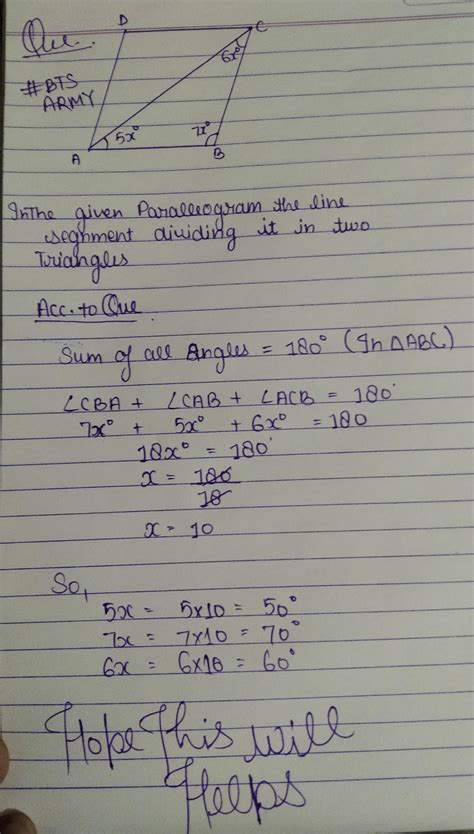 Que.
D C
6x°
#BTS
ARMY
5x° 7x°
A B
InThe given Paralleogram the line
seghment dividing it in two
Triangles
Acc. to Que
Sum of all Angles = 180° (In ΔABC)
∠CBA + ∠CAB + ∠ACB = 180°
7x° + 5x° + 6x° = 180
18x° = 180°
x = 180
18
x = 10
So,
5x = 5x10 = 50°
7x = 7x10 = 70°
6x = 6x10 = 60°
Hope This will
Helps